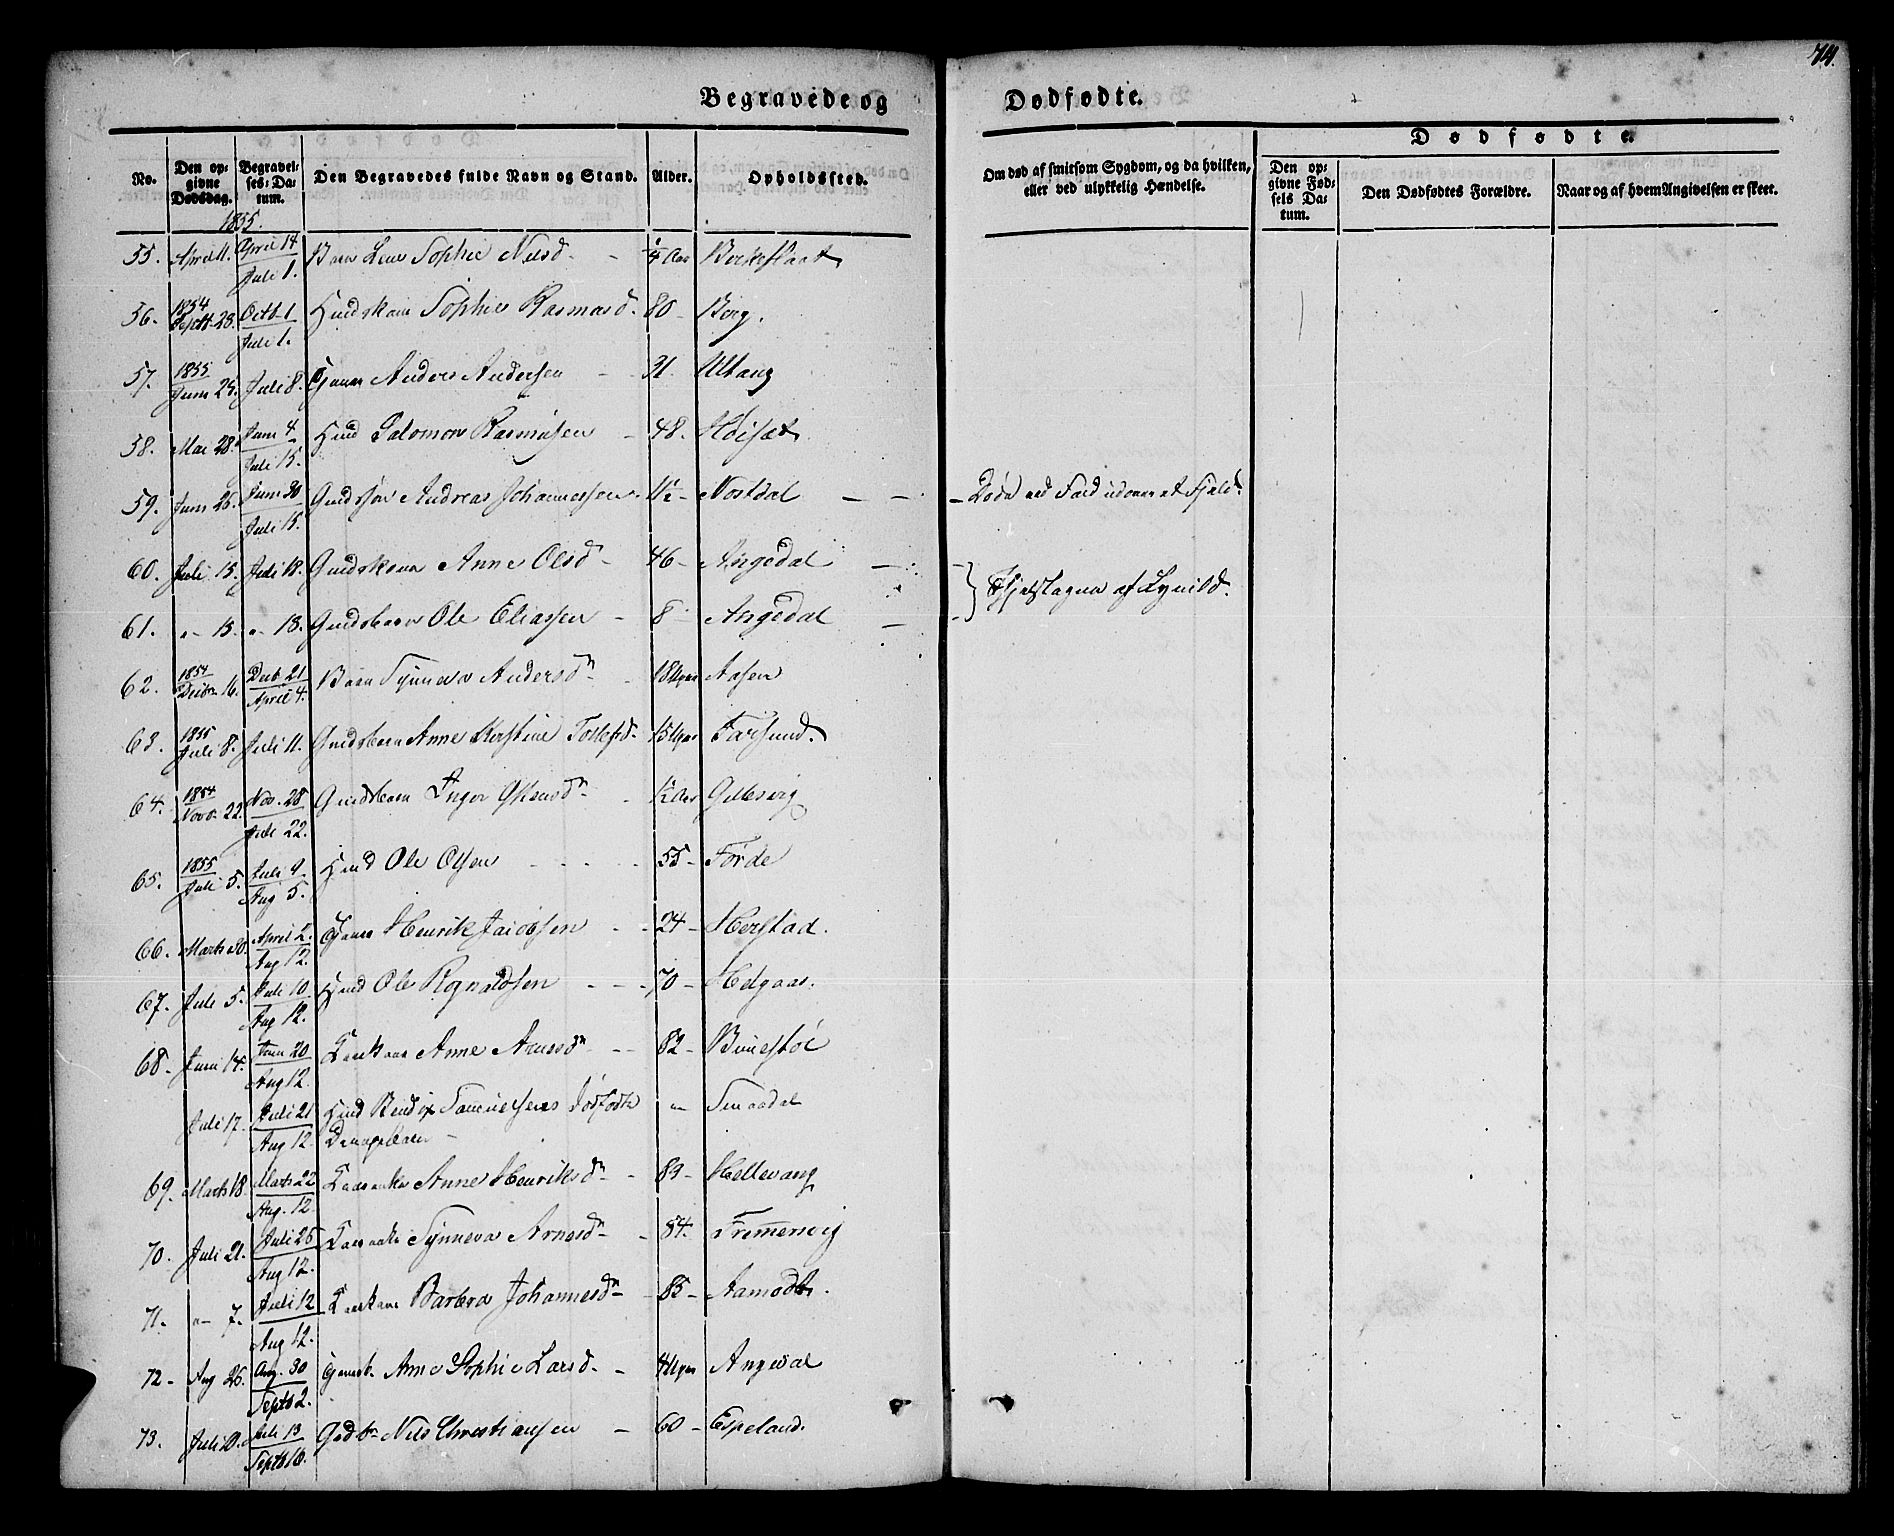 74.
Begravede og Dødfødte.
No.
Den opgivne Dødsdag.
Begravelses-Datum.
Den Begravedes fulde Navn og Stand.
Alder.
Opholdssted.
Om død af smitsom Sygdom, og da hvilken, eller ved ulykkelig Hændelse.
Dødfødte.
Den opgivne Fødsels Datum.
Den Dødfødtes Forældre.
Naar og af hvem Angivelsen er skeet.
1855.
55. April 11. April 14 / Juli 1. Barn Sophie Nilsd. ¼ Aar
56. 1854 Septb. 28. Octb. 1 / Juli 1. Huuskone Sophie Rasmusd. 80 Berg.
57. 1855 Juni 25. Juli 8. Anders Andersen 21
58. Mai 28. Juni 4 / Juli 15. Huusm Salomon Rasmussen 48. Høisæt
59. Juni 26. Juni 30 / Juli 15. Gmdssøn Andreas Johannessen 11½ Nostdal Døde ved Fald udover et Fjeld.
60. Juli 15. Juli 18. Gmdskone Anne Olsd. 46 Angedal
} Ihjelslagne af Lynild.
61. " 15. " 18. Gmdsbarn Ole Eliassen 8 Angedal
62. 1854 Decbr. 16. Decb. 21 / April 4. Barn Synneva Andersd. 18 Uger Aasen
63. 1855 Juli 8. Juli 11. Gmdsbarn Anne Kirstine Tollefsd. 15 Uger Farsund.
64. 1854 Novb. 22. Nov. 28 / Juli 22. Gmdsbarn Inger ½ Aar
65. 1855 Juli 5. Juli 9 / Aug 5. Ole Olsen 55 Førde
66. Marts 30. April 2. / Aug 12. Henrik Jacobsen 24 Herstad.
67. Juli 5. Juli 10 / Aug 12. Ole Rognaldsen 70 Helgaas.
68. Juni 14. Juni 20 / Aug 12. Anne Arnesd. 82
Juli 17. Juli 21 / Aug 12. Bendix Samuelsens dødfødte " Smaadal
Drengebarn
69. Marts 18. Marts 22 / Aug. 12. Anne Henriksd. 89 Hellevang
70. Juli 21. Juli 26 / Aug 12. Synneva Arnesd. 84.
71. " 7. Juli 12 / Aug 12. Barbra Johannesd. 85 Aamodt.
72 Aug 26. Aug. 30 / Septb 2. Anne Sophie Larsd. 4 Uger Angedal
73. Juli 10. Juli 13 / Septb 16. Nils Christiansen 60 Espeland.